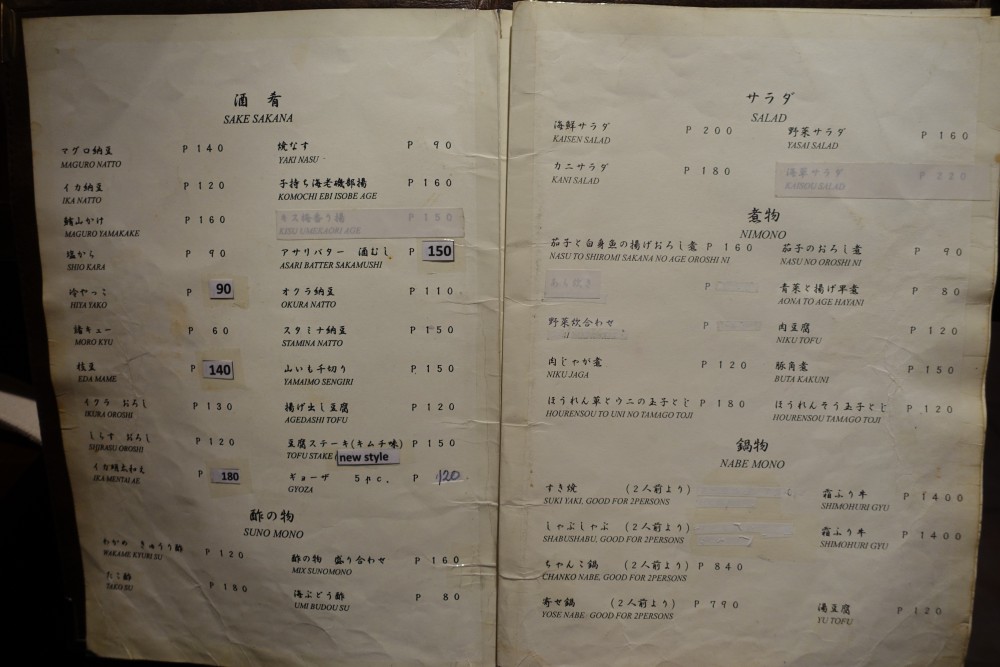 酒肴
SAKE SAKANA
マグロ納豆 P 140
MAGURO NATTO
イカ納豆 P 120
IKA NATTO
鮪山かけ P 160
MAGURO YAMAKAKE
塩から P 90
SHIO KARA
冷やっこ P 90
HIYA YAKO
諸キュー P 60
MORO KYU
枝豆 P 140
EDA MAME
イクラ おろし P 130
IKURA OROSHI
しらす おろし P 120
SHIRASU OROSHI
イカ明太和え P 180
IKA MENTAI AE
焼なす P 90
YAKI NASU
子持ち海老磯部揚 P 160
KOMOCHI EBI ISOBE AGE
キス梅香り揚 P 150
KISU UMEKAORI AGE
アサリバター 酒むし P 150
ASARI BATTER SAKAMUSHI
オクラ納豆 P 110
OKURA NATTO
スタミナ納豆 P 150
STAMINA NATTO
山いも千切り P 150
YAMAIMO SENGIRI
揚げ出し豆腐 P 120
AGEDASHI TOFU
豆腐ステーキ(キムチ味) P 150
TOFU STAKE new style
ギョーザ 5pc. P 120
GYOZA
酢の物
SUNO MONO
わかめ きゅうり酢 P 120
WAKAME KYURI SU
たこ酢 P 180
TAKO SU
酢の物 盛り合わせ P 160
MIX SUNOMONO
海ぶどう酢 P 80
UMI BUDOU SU
サラダ
SALAD
海鮮サラダ P 200
KAISEN SALAD
カニサラダ P 180
KANI SALAD
野菜サラダ P 160
YASAI SALAD
海草サラダ P 220
KAISOU SALAD
煮物
NIMONO
茄子と白身魚の揚げおろし煮 P 160
NASU TO SHIROMI SAKANA NO AGE OROSHI NI
あら炊き P
野菜炊合わせ P
肉じゃが煮 P 120
NIKU JAGA
ほうれん草とウニの玉子とじ P 180
HOURENSOU TO UNI NO TAMAGO TOJI
茄子のおろし煮 P 90
NASU NO OROSHI NI
青菜と揚げ半煮 P 80
AONA TO AGE HAYANI
肉豆腐 P 120
NIKU TOFU
豚角煮 P 150
BUTA KAKUNI
ほうれんそう玉子とじ P 120
HOURENSOU TAMAGO TOJI
鍋物
NABE MONO
すき焼 (2人前より)
SUKI YAKI, GOOD FOR 2PERSONS
霜ふり牛 P 1400
SHIMOHURI GYU
しゃぶしゃぶ (2人前より)
SHABUSHABU, GOOD FOR 2PERSONS
霜ふり牛 P 1400
SHIMOHURI GYU
ちゃんこ鍋 (2人前より) P 840
CHANKO NABE, GOOD FOR 2PERSONS
寄せ鍋 (2人前より) P 790
YOSE NABE, GOOD FOR 2PERSONS
湯豆腐 P 120
YU TOFU